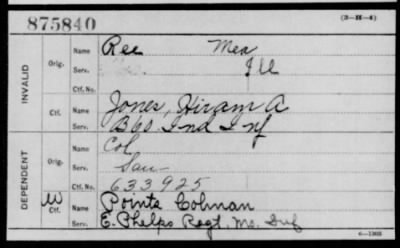 875840 (3-H-4)
INVALID Orig. Name Ree Mex
Serv. Ill
Ctf. No.
Ctf. Name Jones, Hiram A
Serv. B 60 Ind Inf
DEPENDENT Orig. Name Col
Serv. Sau
Ctf. No. 633925
W Ctf. Name Points Colman
Serv. E. Phelps Regt. Mo. Inf
6-1903